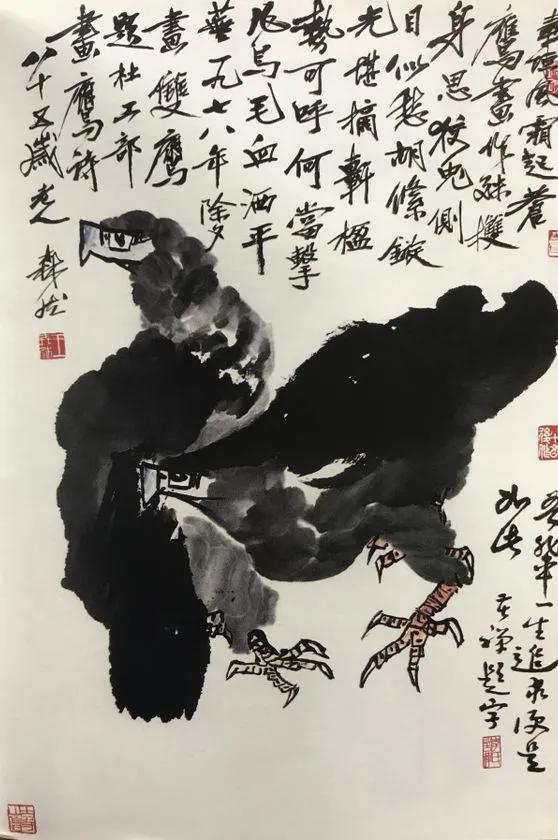 素練風霜起蒼
鷹畫作殊㩳
身思狡兔側
目似愁胡絛鏇
光堪摘軒楹
勢可呼何當擊
凡鳥毛血洒平
蕪一九七八年除夕
畫雙鷹
題杜工部
畫鷹詩
八十五歲老人
森然
一生追求便是
如此
苦禅題字